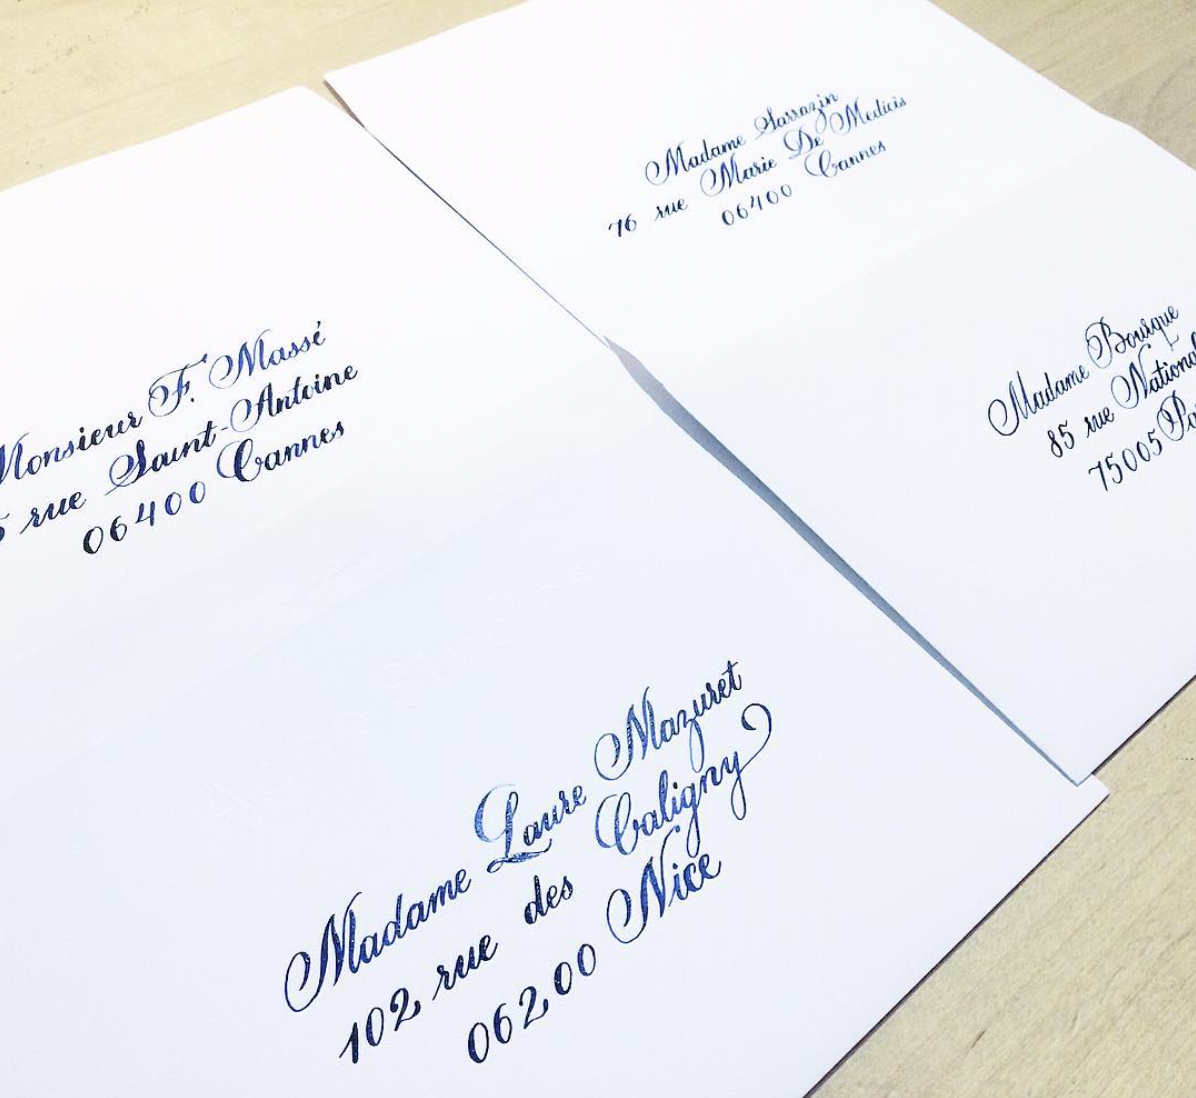 Madame Sarrazin
76 rue Marie De Medicis
06400 Cannes
Monsieur F. Massé
5 rue Saint-Antoine
06400 Cannes
Madame Bousque
85 rue National
75005 Pa
Madame Laure Mazuret
102 rue des Caligny
06200 Nice